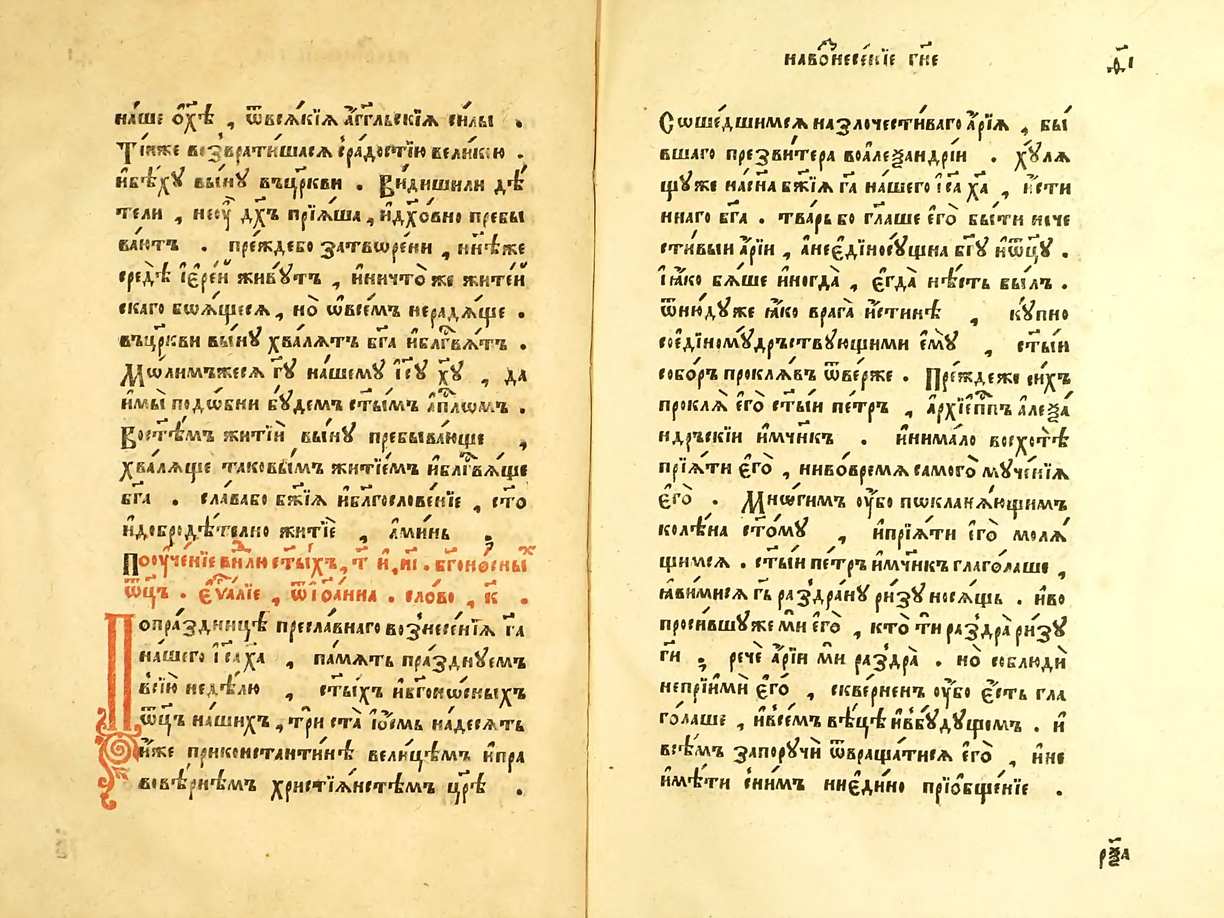 наше о҆́хѣ , ѿвсѧ́кїѧ а҆́гг҃льскїѧ си́лы .
Ті́иже возврати́шасѧ сра́достїю вели́кою .
ибѣ́хꙋ вы́нꙋ въцр҃кви . Ви́дишили дѣ́
тели , несꙋ́ дх҃ъ прїѧ́ша , идх҃о́вно пребы
ва́ютъ . пре́ждебо затво́рени , нн҃ѣже
средѣ̀ і҆єре́й живꙋ́тъ , ини́что же жите́й
скаго боѧ́щесѧ , но̀ ѡ҆все́мъ нерадѧ́ще .
въцр҃кви вы́нꙋ хва́лѧтъ бг҃а ибл҃гвѧ́тъ .
Мо́лимъжесѧ гꙋ҃ на́шемꙋ і҆сꙋ҃ хꙋ҃ , да
имы̀ подо́бни бꙋ́демъ ст҃ы́мъ а҆пл҃омъ .
Востѣ́мъ житїѝ вы́нꙋ пребыва́юще ,
хва́лѧще таковы́мъ житїе́мъ ибл҃гвѧ́ще
бг҃а . сла́вабо бж҃їѧ ибл҃гослове́нїе , сто
идобродѣ́телно житїѐ , а҆ми́нь .
Поꙋче́нїе внл҃и ст҃ы́хъ , т҃ и҃ , и҃і . бг҃оно́сны
ѿц҃ъ . є҆ѵа́лїе , ѿі҆оа́нна . сло́во , к҃ .
Попра́здницѣ пресла́внаго вознесе́нїѧ га҃
на́шего і҆са ха҃ , па́мѧть пра́зднꙋемъ
всїю̀ недѣ́лю , ст҃ы́хъ ибг҃оно́сныхъ
ѿц҃ъ на́шихъ , три́ ста ио҆́смь на́десѧть
и҆́же приконстанти́нѣ вели́цѣмъ ипра
вовѣ́рнѣмъ христїѧ́нстѣмъ цр҃ѣ̀ .
НАВОЗНЕСЕ́НЇЕ ГН҃Е
ф҃і
Соше́дшимсѧ назлочести́ваго а҆́рїѧ , бы́
вшаго презви́тера воалеѯандрі́и . хꙋ́лѧ
щꙋже насн҃а бж҃їѧ га҃ на́шего і҆са ха҃ , и҆́сти
ннаго бг҃а . тва́рь бо гл҃аше є҆го̀ бы́ти нече
сти́выи а҆́рїи , анеє҆дїносꙋ́щна бг҃ꙋ иѿц҃ꙋ .
І҆ ꙗ҆́ко бѧ́ше и҆ногда̀ , є҆гда̀ нѣ́сть бы́лъ .
ѿню́дꙋже ꙗ҆́ко врага̀ и҆́стинѣ , кꙋ́пно
соедїномꙋ́дръствꙋющими є҆мꙋ̀ , ст҃ы́и
собо́ръ проклѧ́въ ѿве́рже . Пре́ждеже си́хъ
проклѧ̀ є҆го̀ ст҃ы́и пе́тръ , а҆рхїеп҃пъ алеѯа́
ндръскїи и҆́мчн҃къ . инима́ло восхотѣ̀
прїѧ́ти є҆го̀ , ниво́времѧ самого̀ мꙋче́нїѧ
є҆го̀ . Мно́гимъ ꙋ҆́бо покланѧ́ющимъ
колѣ́на ст҃о́мꙋ , ипрїѧ́ти є҆го̀ молѧ́
щимсѧ . ст҃ы́и пе́тръ и҆́мчн҃къ глаго́лаше ,
ꙗ҆ви́мисѧ гь҃ раздра́нꙋ ри́зꙋ носѧ́щь . иво
проси́вшꙋже мѝ є҆го̀ , кто̀ ти раздра̀ ри́зꙋ
ги҃ ; речѐ а҆́рїи ми раздра̀ . но̀ соблюдѝ
неприимѝ є҆го̀ , скве́рненъ ꙋ҆́бо є҆́сть гла
го́лаше , ивсе́мъ вѣ́цѣ ивбꙋ́дꙋщемъ . и҆
всѣ́мъ запорꙋчѝ ѿвраща́тисѧ є҆го̀ , ине
имѣ́ти сни́мъ ниеди́но прїо҆бще́нїе .
рѯ҃а